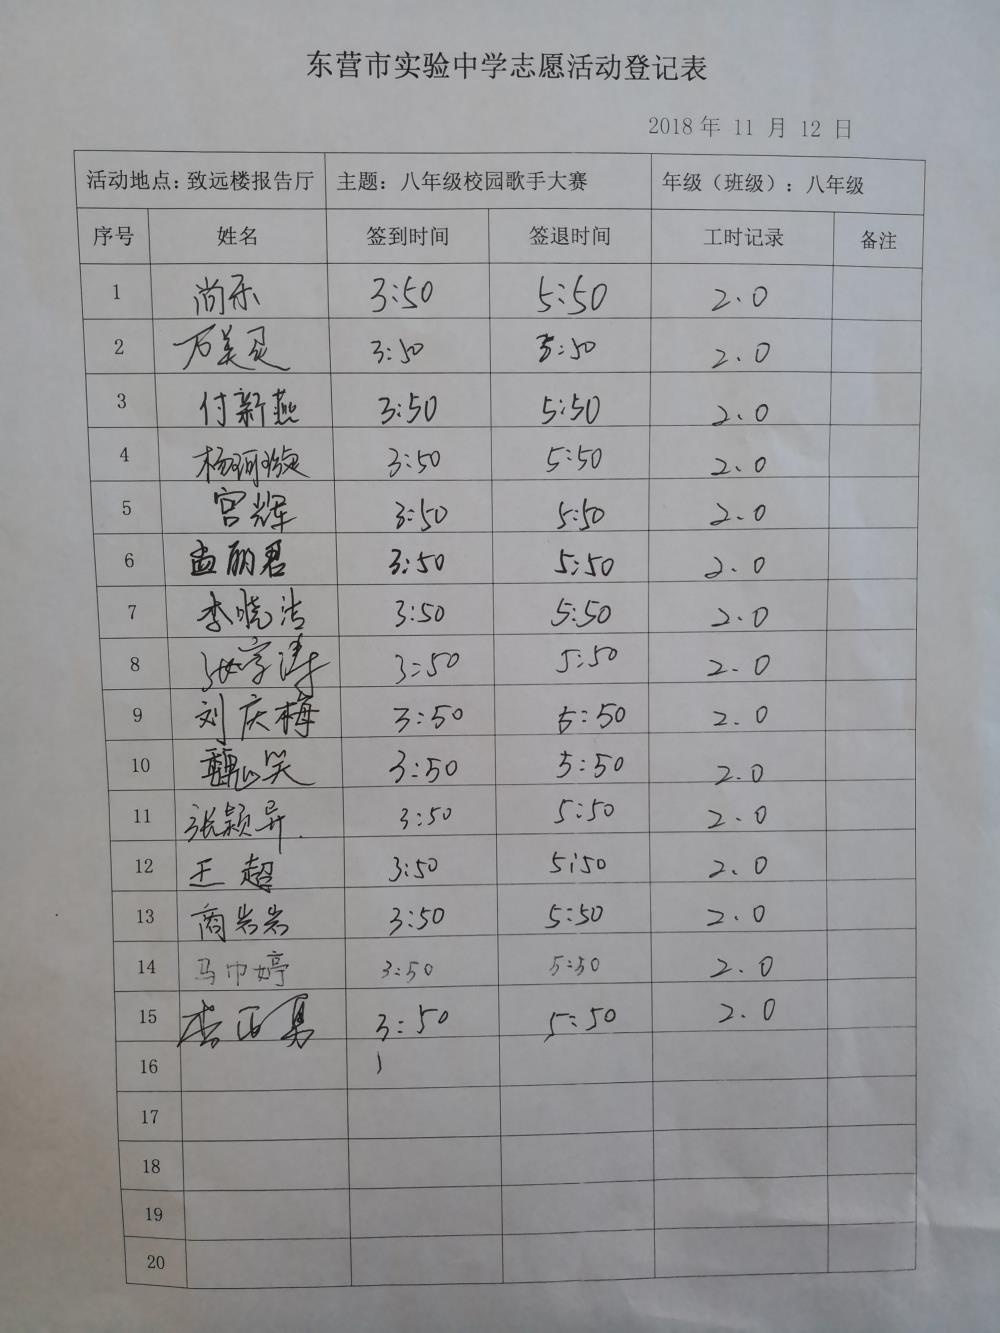 东营市实验中学志愿活动登记表
2018 年 11 月 12 日
活动地点：致远楼报告厅 主题：八年级校园歌手大赛 年级（班级）：八年级
序号 姓名 签到时间 签退时间 工时记录 备注
1 尚乐 3:50 5:50 2.0
2 万美灵 3:50 5:50 2.0
3 付新燕 3:50 5:50 2.0
4 杨珂璇 3:50 5:50 2.0
5 宫辉 3:50 5:50 2.0
6 孟丽君 3:50 5:50 2.0
7 李晓洁 3:50 5:50 2.0
8 张宇涛 3:50 5:50 2.0
9 刘庆梅 3:50 5:50 2.0
10 魏笑 3:50 5:50 2.0
11 张颖异 3:50 5:50 2.0
12 王超 3:50 5:50 2.0
13 商岩岩 3:50 5:50 2.0
14 马巾婷 3:50 5:50 2.0
15 李 3:50 5:50 2.0
16
17
18
19
20